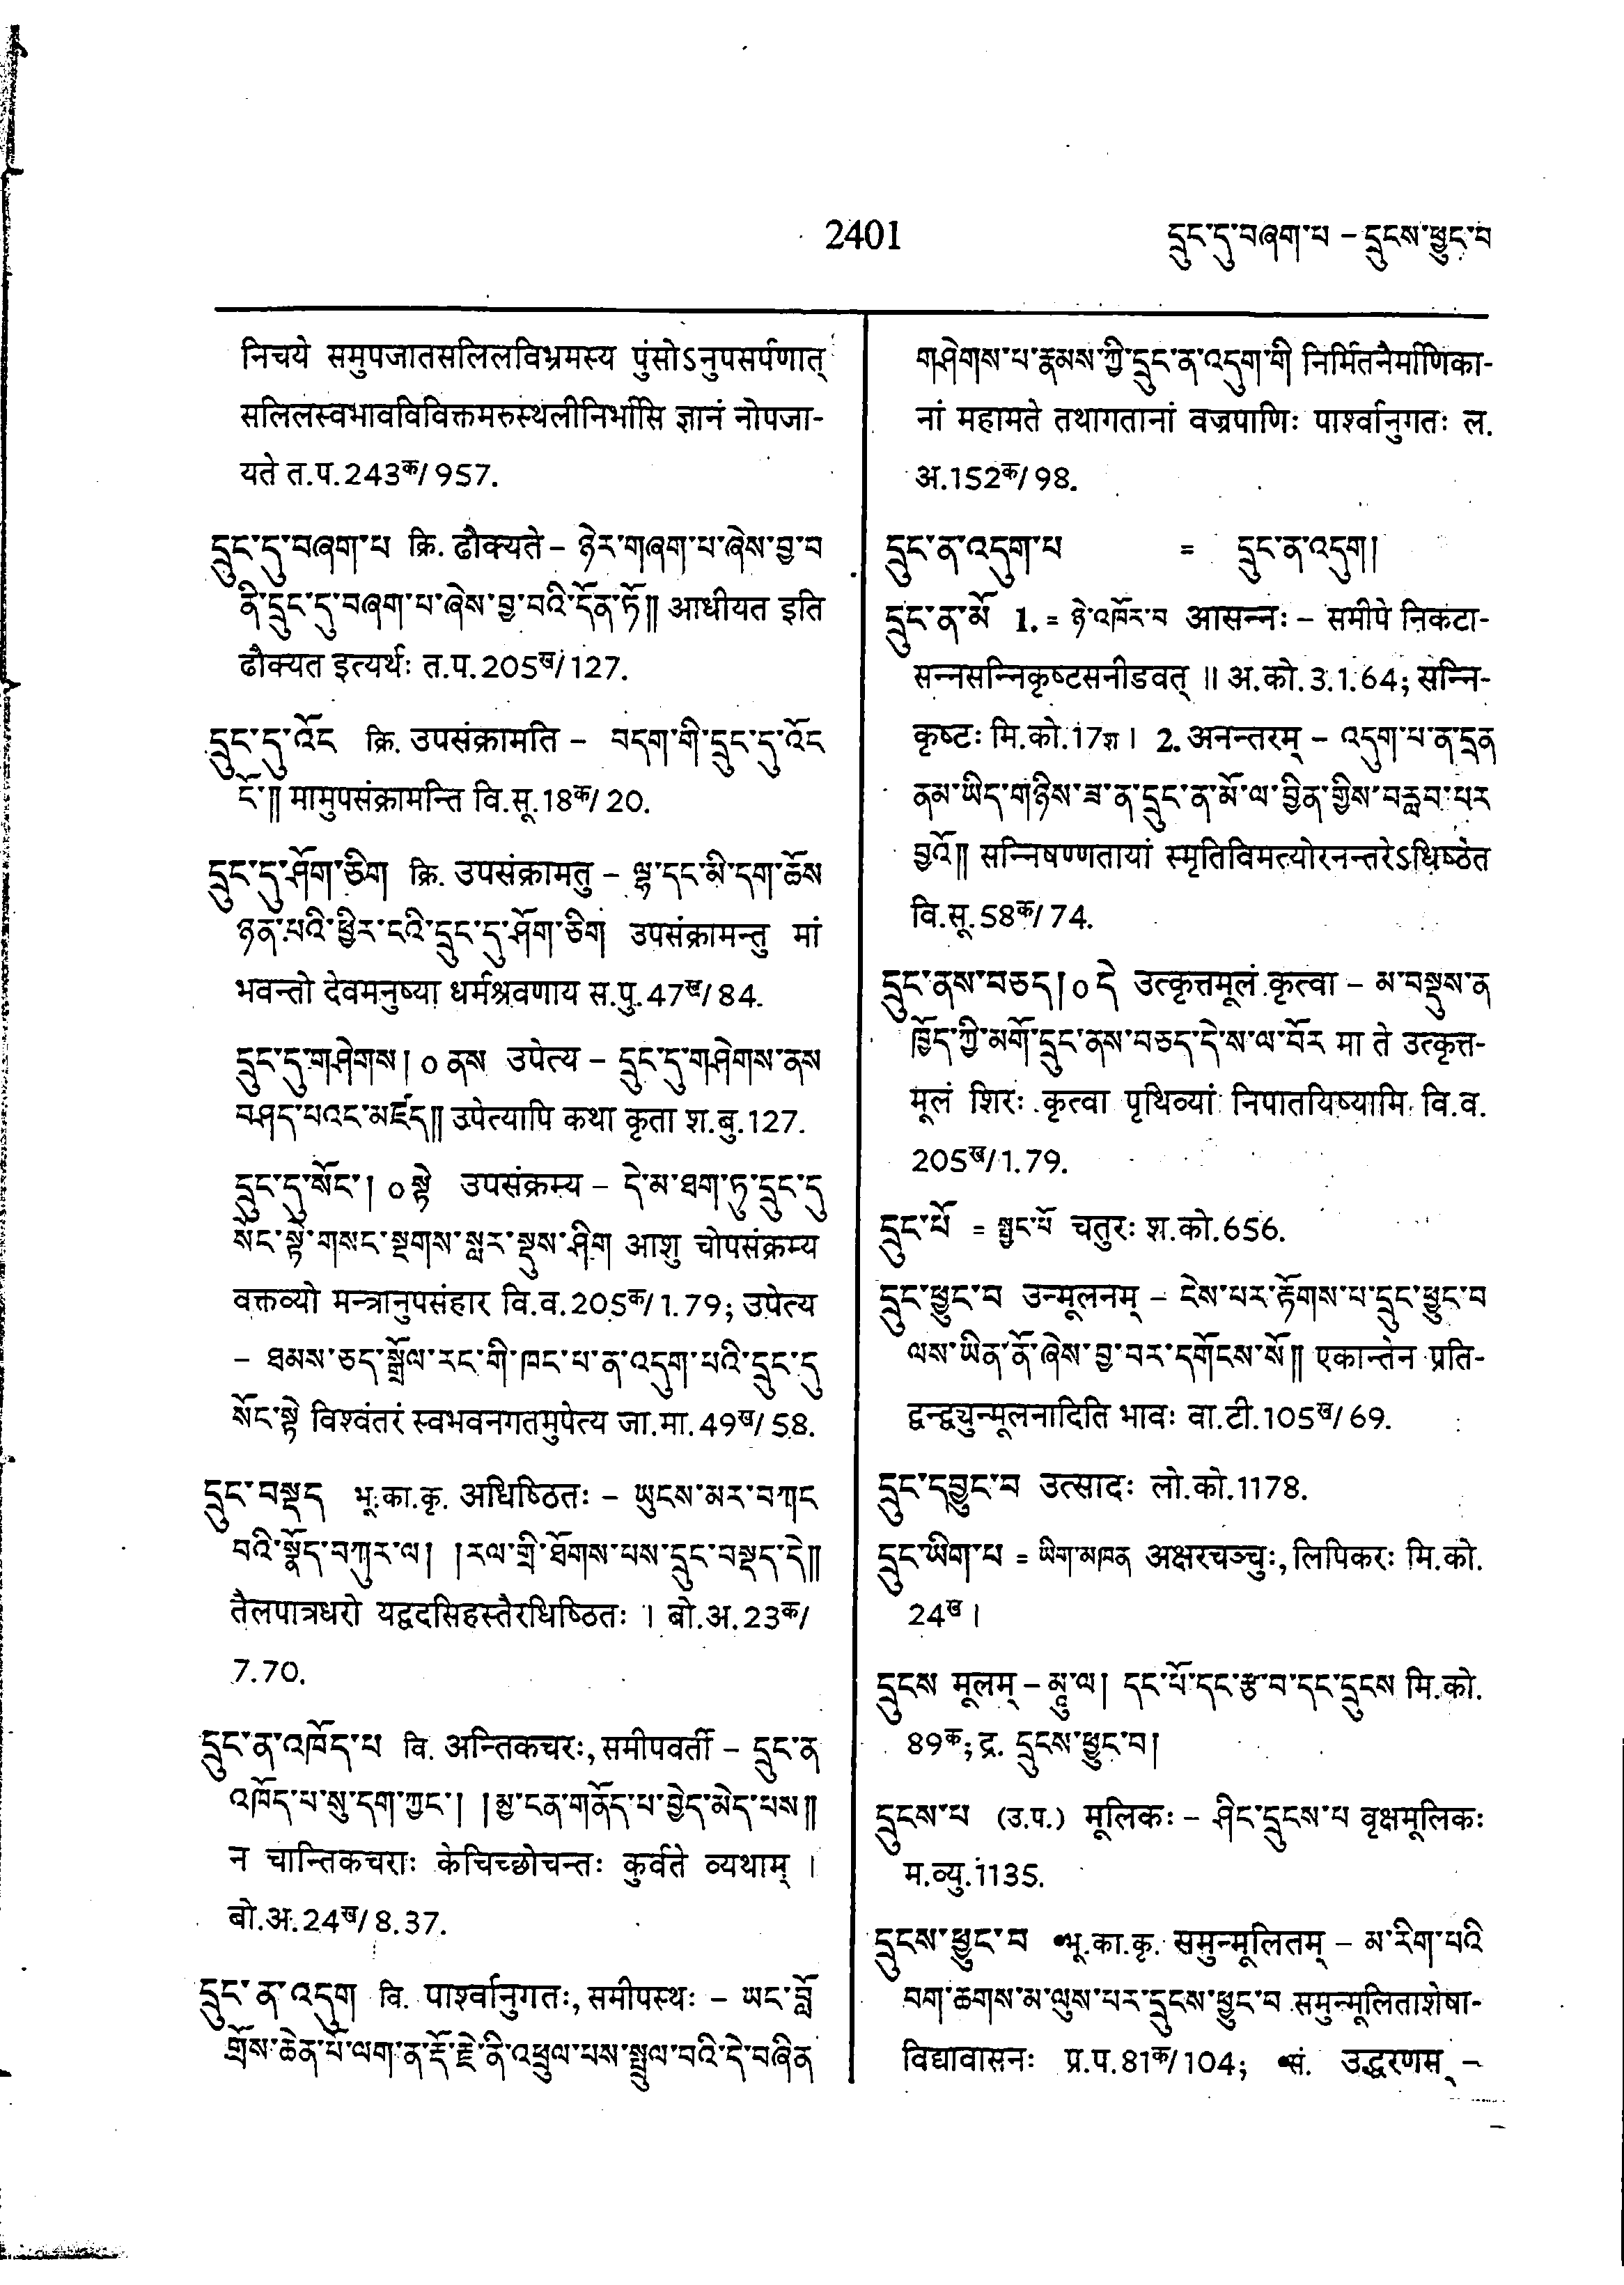 2401
དྲུང་དུ་བཞག་པ – དྲུངས་ཕྱུང་བ
निचये समुपजातसलिलविभ्रमस्य पुंसोऽनुपसर्पणात्
सलिलस्वभावविविक्तमरुस्थलीनिर्भासि ज्ञानं नोपजा-
यते त.प.243क/957.
དྲུང་དུ་བཞག་པ क्रि. ढौक्यते – ཉེར་གཞག་པ་ཞེས་བྱ་བ
ནི་དྲུང་དུ་བཞག་པ་ཞེས་བྱ་བའི་དོན་ཏོ༎ आधीयत इति
ढौक्यत इत्यर्थः त.प.205ख/127.
དྲུང་དུ་འོང क्रि. उपसंक्रामति – བདག་གི་དྲུང་དུ་འོང
ངོ་༎ मामुपसंक्रामन्ति वि.सू.18क/20.
དྲུང་དུ་ཤོག་ཅིག क्रि. उपसंक्रामतु – ལྷ་དང་མི་དག་ཆོས
ཉན་པའི་ཕྱིར་ངའི་དྲུང་དུ་ཤོག་ཅིག उपसंक्रामन्तु मां
भवन्तो देवमनुष्या धर्मश्रवणाय स.पु.47ख/84.
དྲུང་དུ་གཤེགས། ० ནས उपेत्य – དྲུང་དུ་གཤེགས་ནས
བཤད་པའང་མཛད༎ उपेत्यापि कथा कृता श.बु.127.
དྲུང་དུ་སོང་། ० སྟེ उपसंक्रम्य – དེ་མ་ཐག་ཏུ་དྲུང་དུ
སོང་སྟེ་གསང་སྔགས་སླར་སྡུས་ཤིག आशु चोपसंक्रम्य
वक्तव्यो मन्त्रानुपसंहार वि.व.205क/1.79; उपेत्य
– ཐམས་ཅད་སྒྲོལ་རང་གི་ཁང་པ་ན་འདུག་པའི་དྲུང་དུ
སོང་སྟེ विश्वंतरं स्वभवनगतमुपेत्य जा.मा.49ख/58.
དྲུང་བསྡད भू.का.कृ. अधिष्ठितः – ཡུངས་མར་བཀང
བའི་སྣོད་བཀུར་ལ། །རལ་གྲི་ཐོགས་པས་དྲུང་བསྡད་དེ༎
तैलपात्रधरो यद्वदसिहस्तैरधिष्ठितः । बो.अ.23क/
7.70.
དྲུང་ན་འཁོད་པ वि. अन्तिकचरः, समीपवर्ती – དྲུང་ན
འཁོད་པ་སུ་དག་ཀྱང་། །མྱ་ངན་གནོད་པ་བྱེད་མེད་པས༎
न चान्तिकचराः केचिच्छोचन्तः कुर्वते व्यथाम् ।
बो.अ.24ख/8.37.
དྲུང་ན་འདུག वि. पार्श्वानुगतः, समीपस्थः – ཡང་བློ
གྲོས་ཆེན་པོ་ལག་ན་རྡོ་རྗེ་ནི་འཕྲུལ་པས་སྤྲུལ་བའི་དེ་བཞིན
གཤེགས་པ་རྣམས་ཀྱི་དྲུང་ན་འདུག་གི निर्मितनैर्माणिका-
नां महामते तथागतानां वज्रपाणिः पार्श्वानुगतः ल.
अ.152क/98.
དྲུང་ན་འདུག་པ = དྲུང་ན་འདུག།
དྲུང་ན་མོ 1. = ཉེ་འཁོར་བ आसन्नः – समीपे निकटा-
सन्नसन्निकृष्टसनीडवत् ॥ अ.को.3.1.64; सन्नि-
कृष्टः मि.को.17ख । 2. अनन्तरम् – འདུག་པ་ན་དྲན
ནམ་ཡིད་གཉིས་ཟ་ན་དྲུང་ན་མོ་ལ་བྱིན་གྱིས་བརླབ་པར
བྱའོ༎ सन्निषण्णतायां स्मृतिविमत्योरनन्तरेऽधिष्ठेत
वि.सू.58क/74.
དྲུང་ནས་བཅད། ० དེ उत्कृत्तमूलं कृत्वा – མ་བསྡུས་ན
ཁྱོད་ཀྱི་མགོ་དྲུང་ནས་བཅད་དེ་ས་ལ་བོར मा ते उत्कृत्त-
मूलं शिरः कृत्वा पृथिव्यां निपातयिष्यामि वि.व.
205ख/1.79.
དྲུང་པོ = སྤྱང་པོ चतुरः श.को.656.
དྲུང་ཕྱུང་བ उन्मूलनम् – ངེས་པར་རྟོགས་པ་དྲུང་ཕྱུང་བ
ལས་ཡིན་ནོ་ཞེས་བྱ་བར་དགོངས་སོ༎ एकान्तेन प्रति-
द्वन्द्व्युन्मूलनादिति भावः वा.टी.105ख/69.
དྲུང་དབྱུང་བ उत्सादः लो.को.1178.
དྲུང་ཡིག་པ = ཡིག་མཁན अक्षरचञ्चुः, लिपिकरः मि.को.
24ख ।
དྲུངས मूलम् – མཱུ་ལ། དང་པོ་དང་རྩ་བ་དང་དྲུངས मि.को.
89क; द्र. དྲུངས་ཕྱུང་བ།
དྲུངས་པ (उ.प.) मूलिकः – ཤིང་དྲུངས་པ वृक्षमूलिकः
म.व्यु.1135.
དྲུངས་ཕྱུང་བ •भू.का.कृ. समुन्मूलितम् – མ་རིག་པའི
བག་ཆགས་མ་ལུས་པར་དྲུངས་ཕྱུང་བ समुन्मूलिताशेषा-
विद्यावासनः प्र.प.81क/104; •सं. उद्धरणम् –